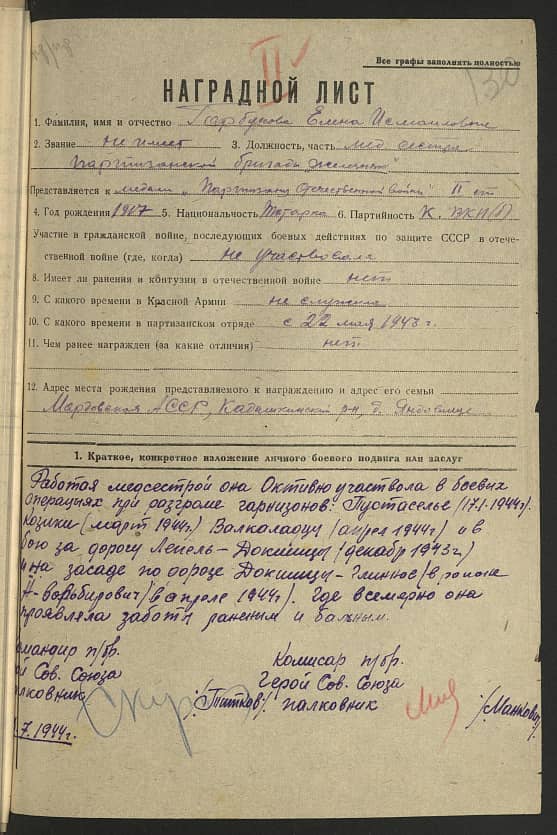 II
130
Все графы заполнять полностью
НАГРАДНОЙ ЛИСТ
1. Фамилия, имя и отчество Елена Исмаиловна
2. Звание не имеет 3. Должность, часть мед. сестра
партизанской бригады „Железняк"
Представляется к медали „Партизану Отечественной войны" II ст
4. Год рождения 1917 5. Национальность Татарка 6. Партийность К. ВКП(б)
Участие в гражданской войне, последующих боевых действиях по защите СССР в отече-
ственной войне (где, когда) не участвовала
8. Имеет ли ранения и контузии в отечественной войне нет
9. С какого времени в Красной Армии не служила
10. С какого времени в партизанском отряде с 22 мая 1943 г.
11. Чем ранее награжден (за какие отличия) нет
12. Адрес места рождения представляемого к награждению и адрес его семьи
Мордовская АССР, р-н, д.
1. Краткое, конкретное изложение личного боевого подвига или заслуг
Работая медсестрой она Активно участвола в боевых
операциях при разгроме гарнизонов: Пустаселье (17.1-1944г).
Козики (март 1944г.) Валкаладцы (апрел 1944г) и в
бою за дорогу Лепель-Докшицы (декабр 1943г.)
и на засаде по дорозе Докшицы-Глинное/в районе
/в апреле 1944г). Где всемерно она
проявляла заботы раненым и бальным.
мандир п/бр. Комисар п/бр.
й Сов. Союза Герой Сов. Союза
лковник /Титков/ палковник /Манкович
.7.1944г.